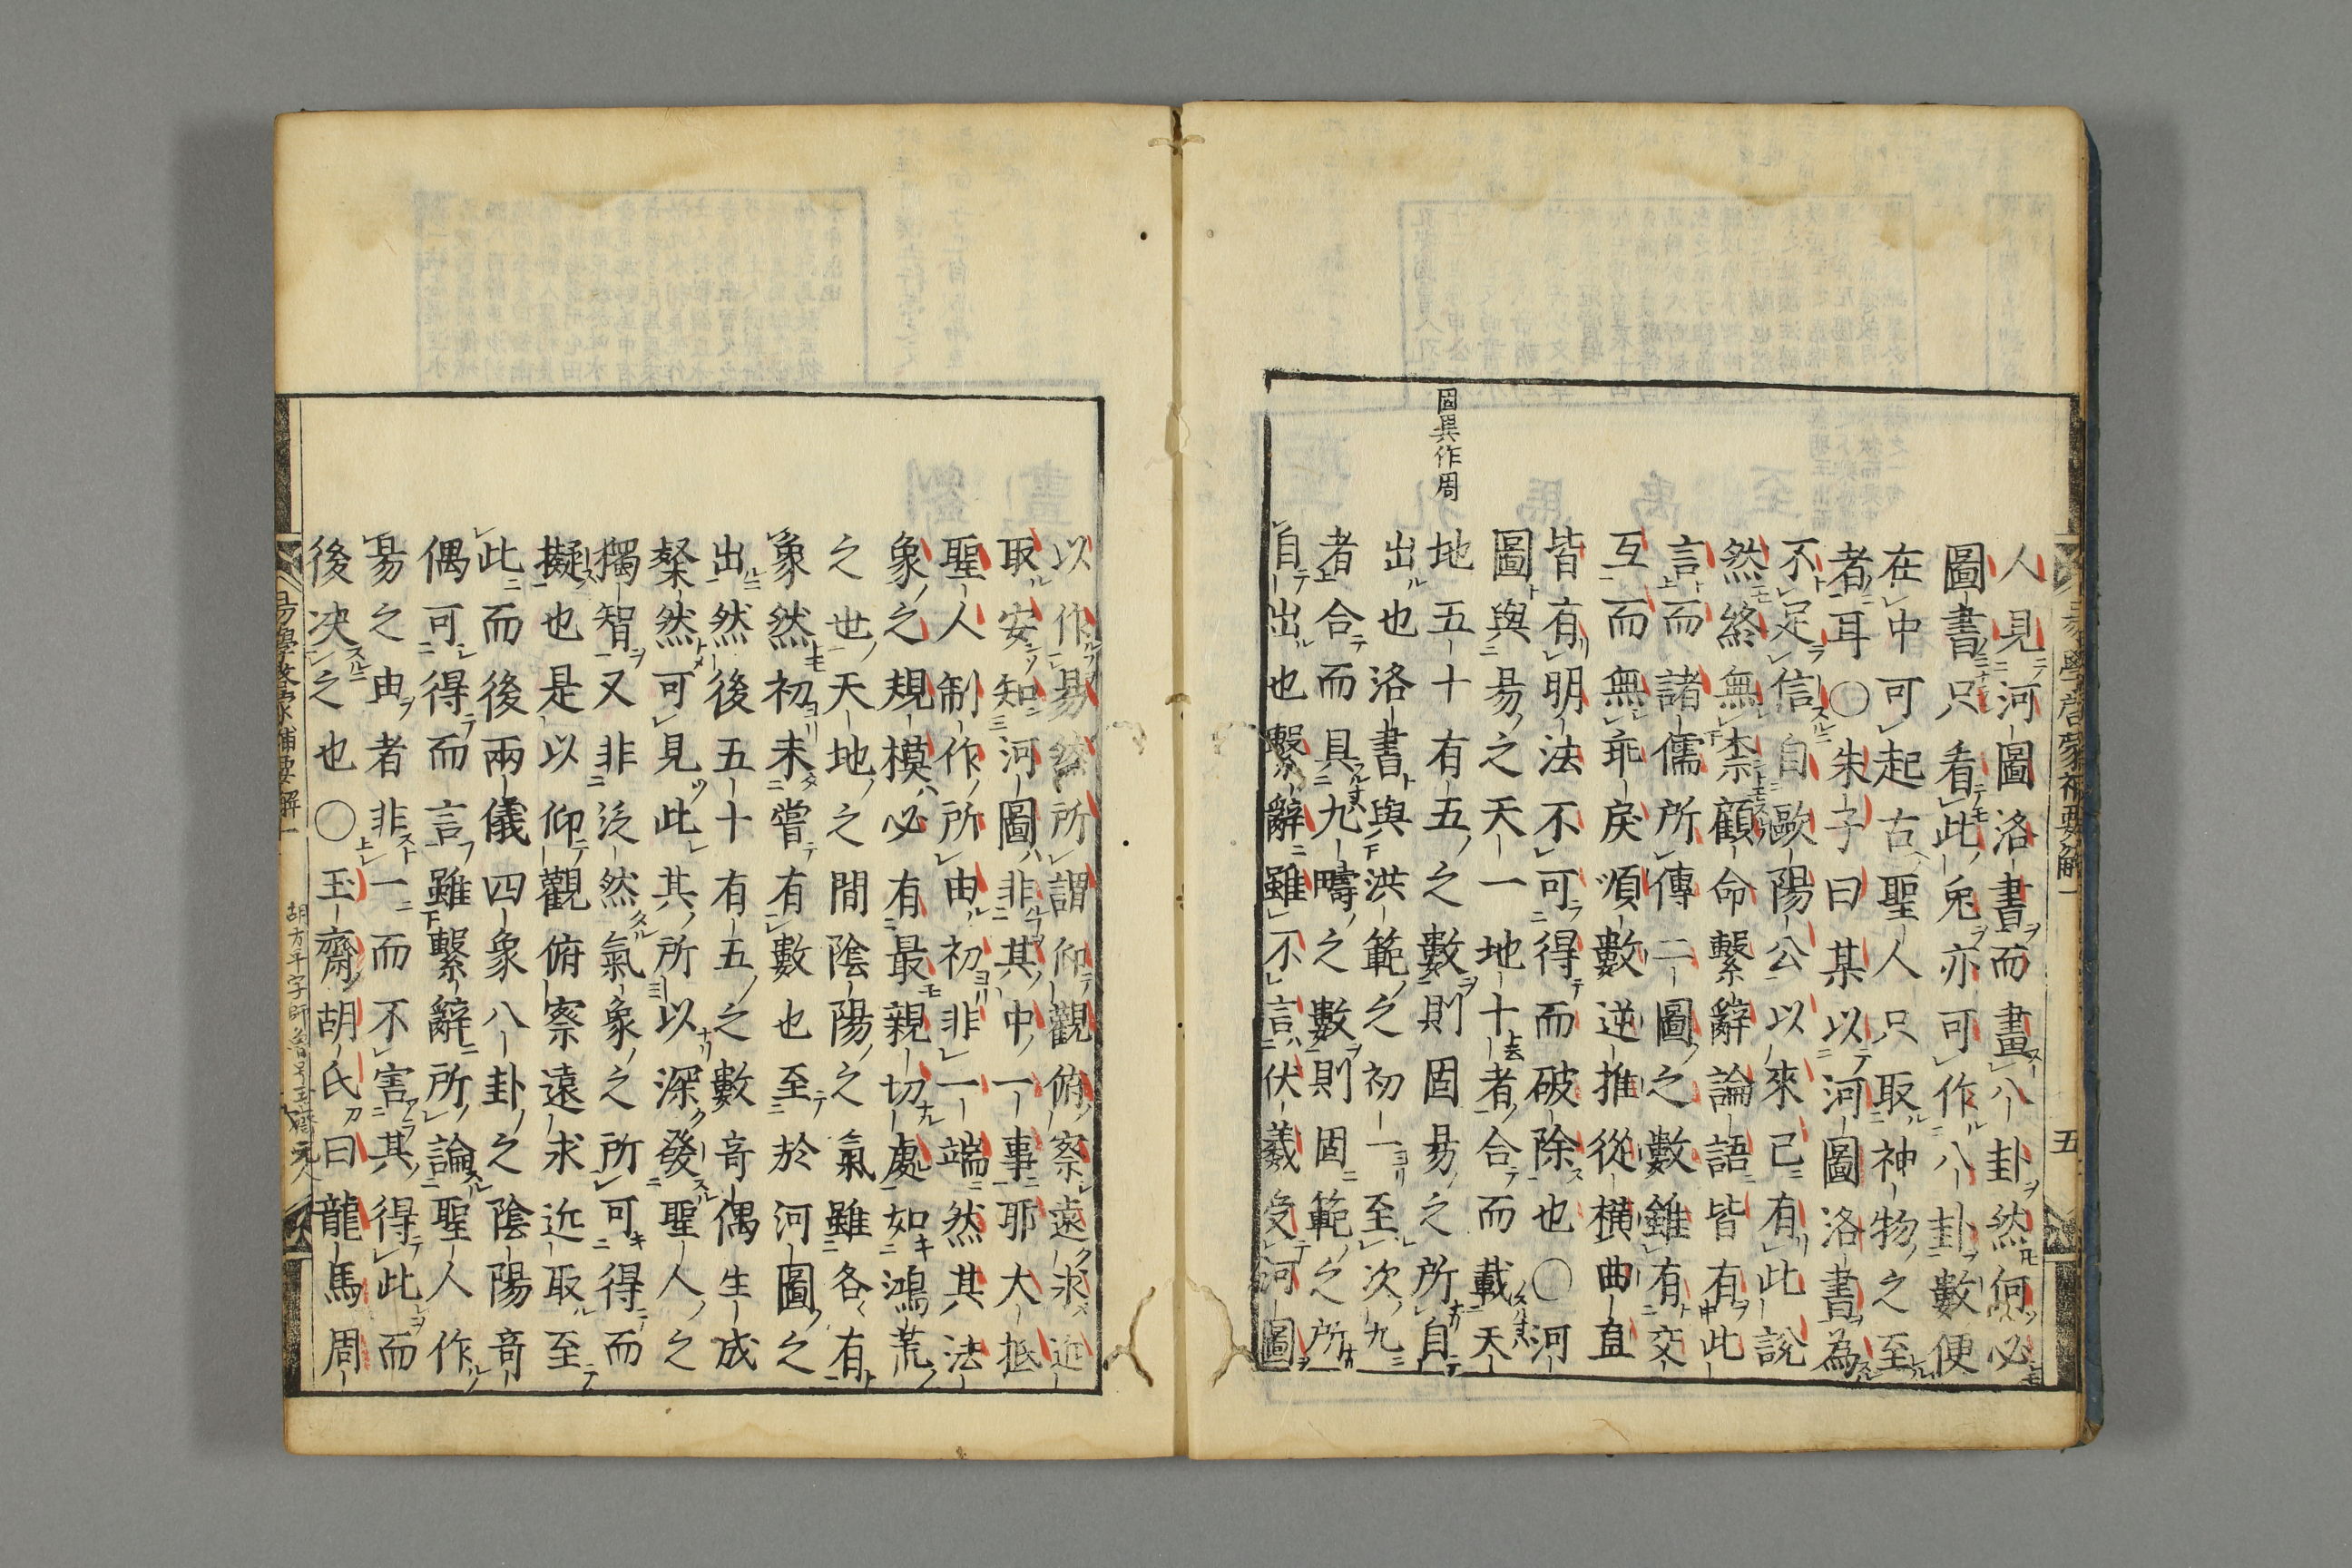 人見河圖洛書而畫八卦然何必
圖書只看此兔亦可作八卦數便
在中可起古聖人只取神物之至
者耳○朱子曰某以河圖洛書為
不足信自歐陽公以來已有此說
然終無柰顧命繫辭論語皆有此
言而諸儒所傳二圖之數雖有交
互而無乖戾順數逆推從橫曲直
皆有明法不可得而破除也○河
圖與易之天一地十者合而載天
地五十有五之數則固易之所自
出也洛書與洪範之初一至次九
者合而具九疇之數則固範之所
自出也繫辭雖不言伏羲受河圖
固異作周
易學啓蒙補要解一
五
以作易然所謂仰觀俯察遠求近
取安知河圖非其中一事耶大抵
聖人制作所由初非一端然其法
象之規模必有最親切處如鴻荒
之世天地之間陰陽之氣雖各有
象然初未嘗有數也至於河圖之
出然後五十有五之數竒偶生成
粲然可見此其所以深發聖人之
獨智又非泛然氣象之所可得而
擬也是以仰觀俯察遠求近取至
此而後兩儀四象八卦之陰陽竒
偶可得而言雖繫辭所論聖人作
易之由者非一而不害其得此而
後决之也○玉齋胡氏曰龍馬周
易學啓蒙補要解一
胡方平字師魯号玉齋元人